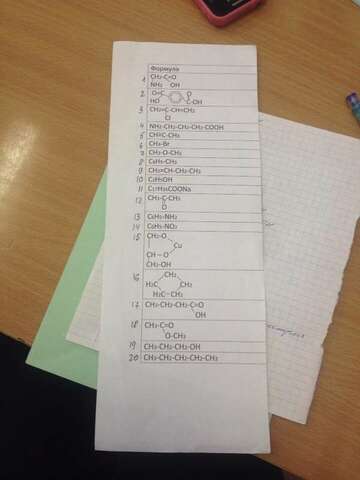 Формула
1 CH₂-C=O
NH₂ OH
2 O=C O
HO C-OH
3 CH₂=C-CH=CH₂
Cl
4 NH₂-CH₂-CH₂-CH₂-COOH
5 CH≡C-CH₃
6 CH₃-Br
7 CH₃-O-CH₃
8 C₆H₅-CH₃
9 CH₂=CH-CH₂-CH₃
10 C₂H₅OH
11 C₁₇H₃₅COONa
12 CH₃-C-CH₃
O
13 C₆H₅-NH₂
14 C₆H₅-NO₂
15 CH₂-O
Cu
CH-O
CH₂-OH
16 CH₂
H₂C CH₂
H₂C-CH₂
17 CH₃-CH₂-CH₂-C=O
OH
18 CH₃-C=O
O-CH₃
19 CH₃-CH₂-CH₂-OH
20 CH₃-CH₂-CH₂-CH₂-CH₃